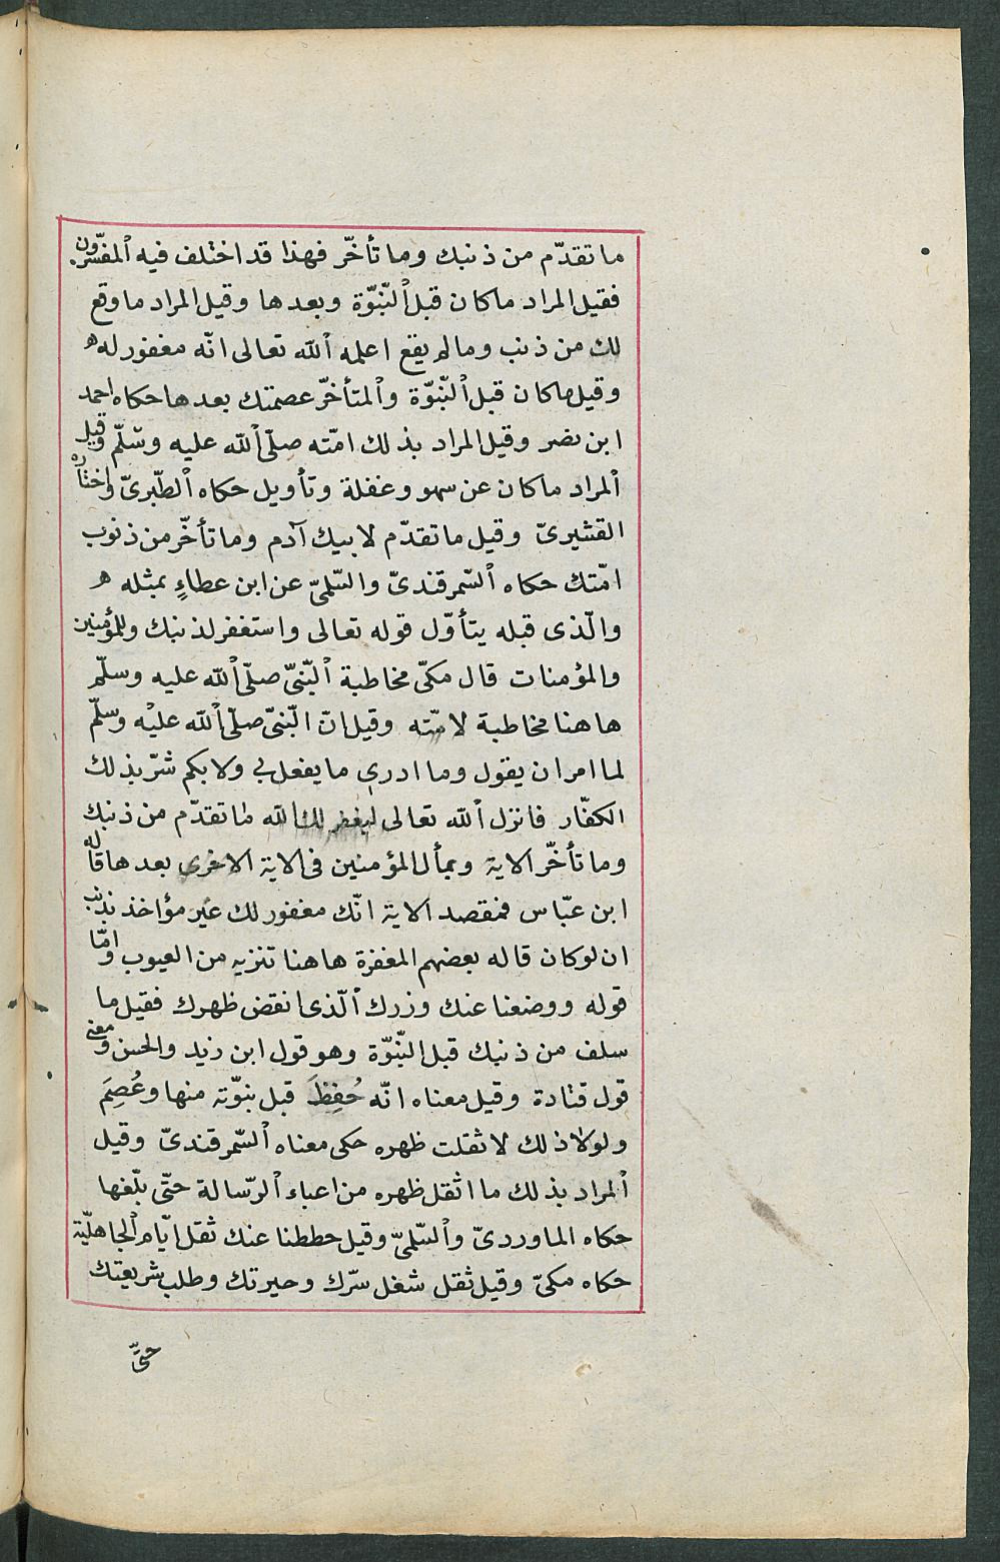 ما تقدّم من ذنبك وما تأخّر فهذا قد اختلف فيه المفسّرون
فقيل المراد ما كان قبل النّبوّة وبعدها وقيل المراد ما وقع
لك من ذنب وما لم يقع اعلمه الله تعالى انّه مغفور له
وقيل ما كان قبل النّبوّة والمتأخّر عصمتك بعدها حكاه احمد
ابن نصر وقيل المراد بذلك امّته صلّى الله عليه وسلّم وقيل
المراد ما كان عن سهو وغفلة وتأويل حكاه الطّبرىّ واختاره
القشيرىّ وقيل ما تقدّم لابيك آدم وما تأخّر من ذنوب
امّتك حكاه السّمرقندىّ والسّلمىّ عن ابن عطاءٍ بمثله
والّذى قبله يتأوّل قوله تعالى واستغفر لذنبك وللمؤمنين
والمؤمنات قال مكىّ مخاطبة النّبىّ صلّى الله عليه وسلّم
هاهنا مخاطبة لامّته وقيل انّ النّبىّ صلّى الله عليه وسلّم
لما امر ان يقول وما ادرى ما يفعل بى ولا بكم سّر بذلك
الكفّار فانزل الله تعالى ليغفر لك الله ما تقدّم من ذنبك
وما تأخّر الاية وبمأل المؤمنين فى الاية الاخرى بعدها قاله
ابن عبّاس فمقصد الاية انّك مغفور لك غير مؤاخذ بذنب
ان لو كان قاله بعضهم المغفرة هاهنا تنزيه من العيوب وامّا
قوله ووضعنا عنك وزرك الّذى انقض ظهرك فقيل ما
سلف من ذنبك قبل النّبّوّة وهو قول ابن زيد والحسن ومعنى
قول قتادة وقيل معناه انّه حُفِظَ قبل نبوّته منها وعُصِمَ
ولولا ذلك لاثقلت ظهره حكى معناه السّمرقندىّ وقيل
المراد بذلك ما اثقل ظهره من اعباء الرّسالة حتّى بلّغها
حكاه الماوردىّ والسّلمىّ وقيل حططنا عنك ثقل ايّام الجاهليّة
حكاه مكىّ وقيل ثقل شغل سرّك وحيرتك وطلب شريعتك
حتّى